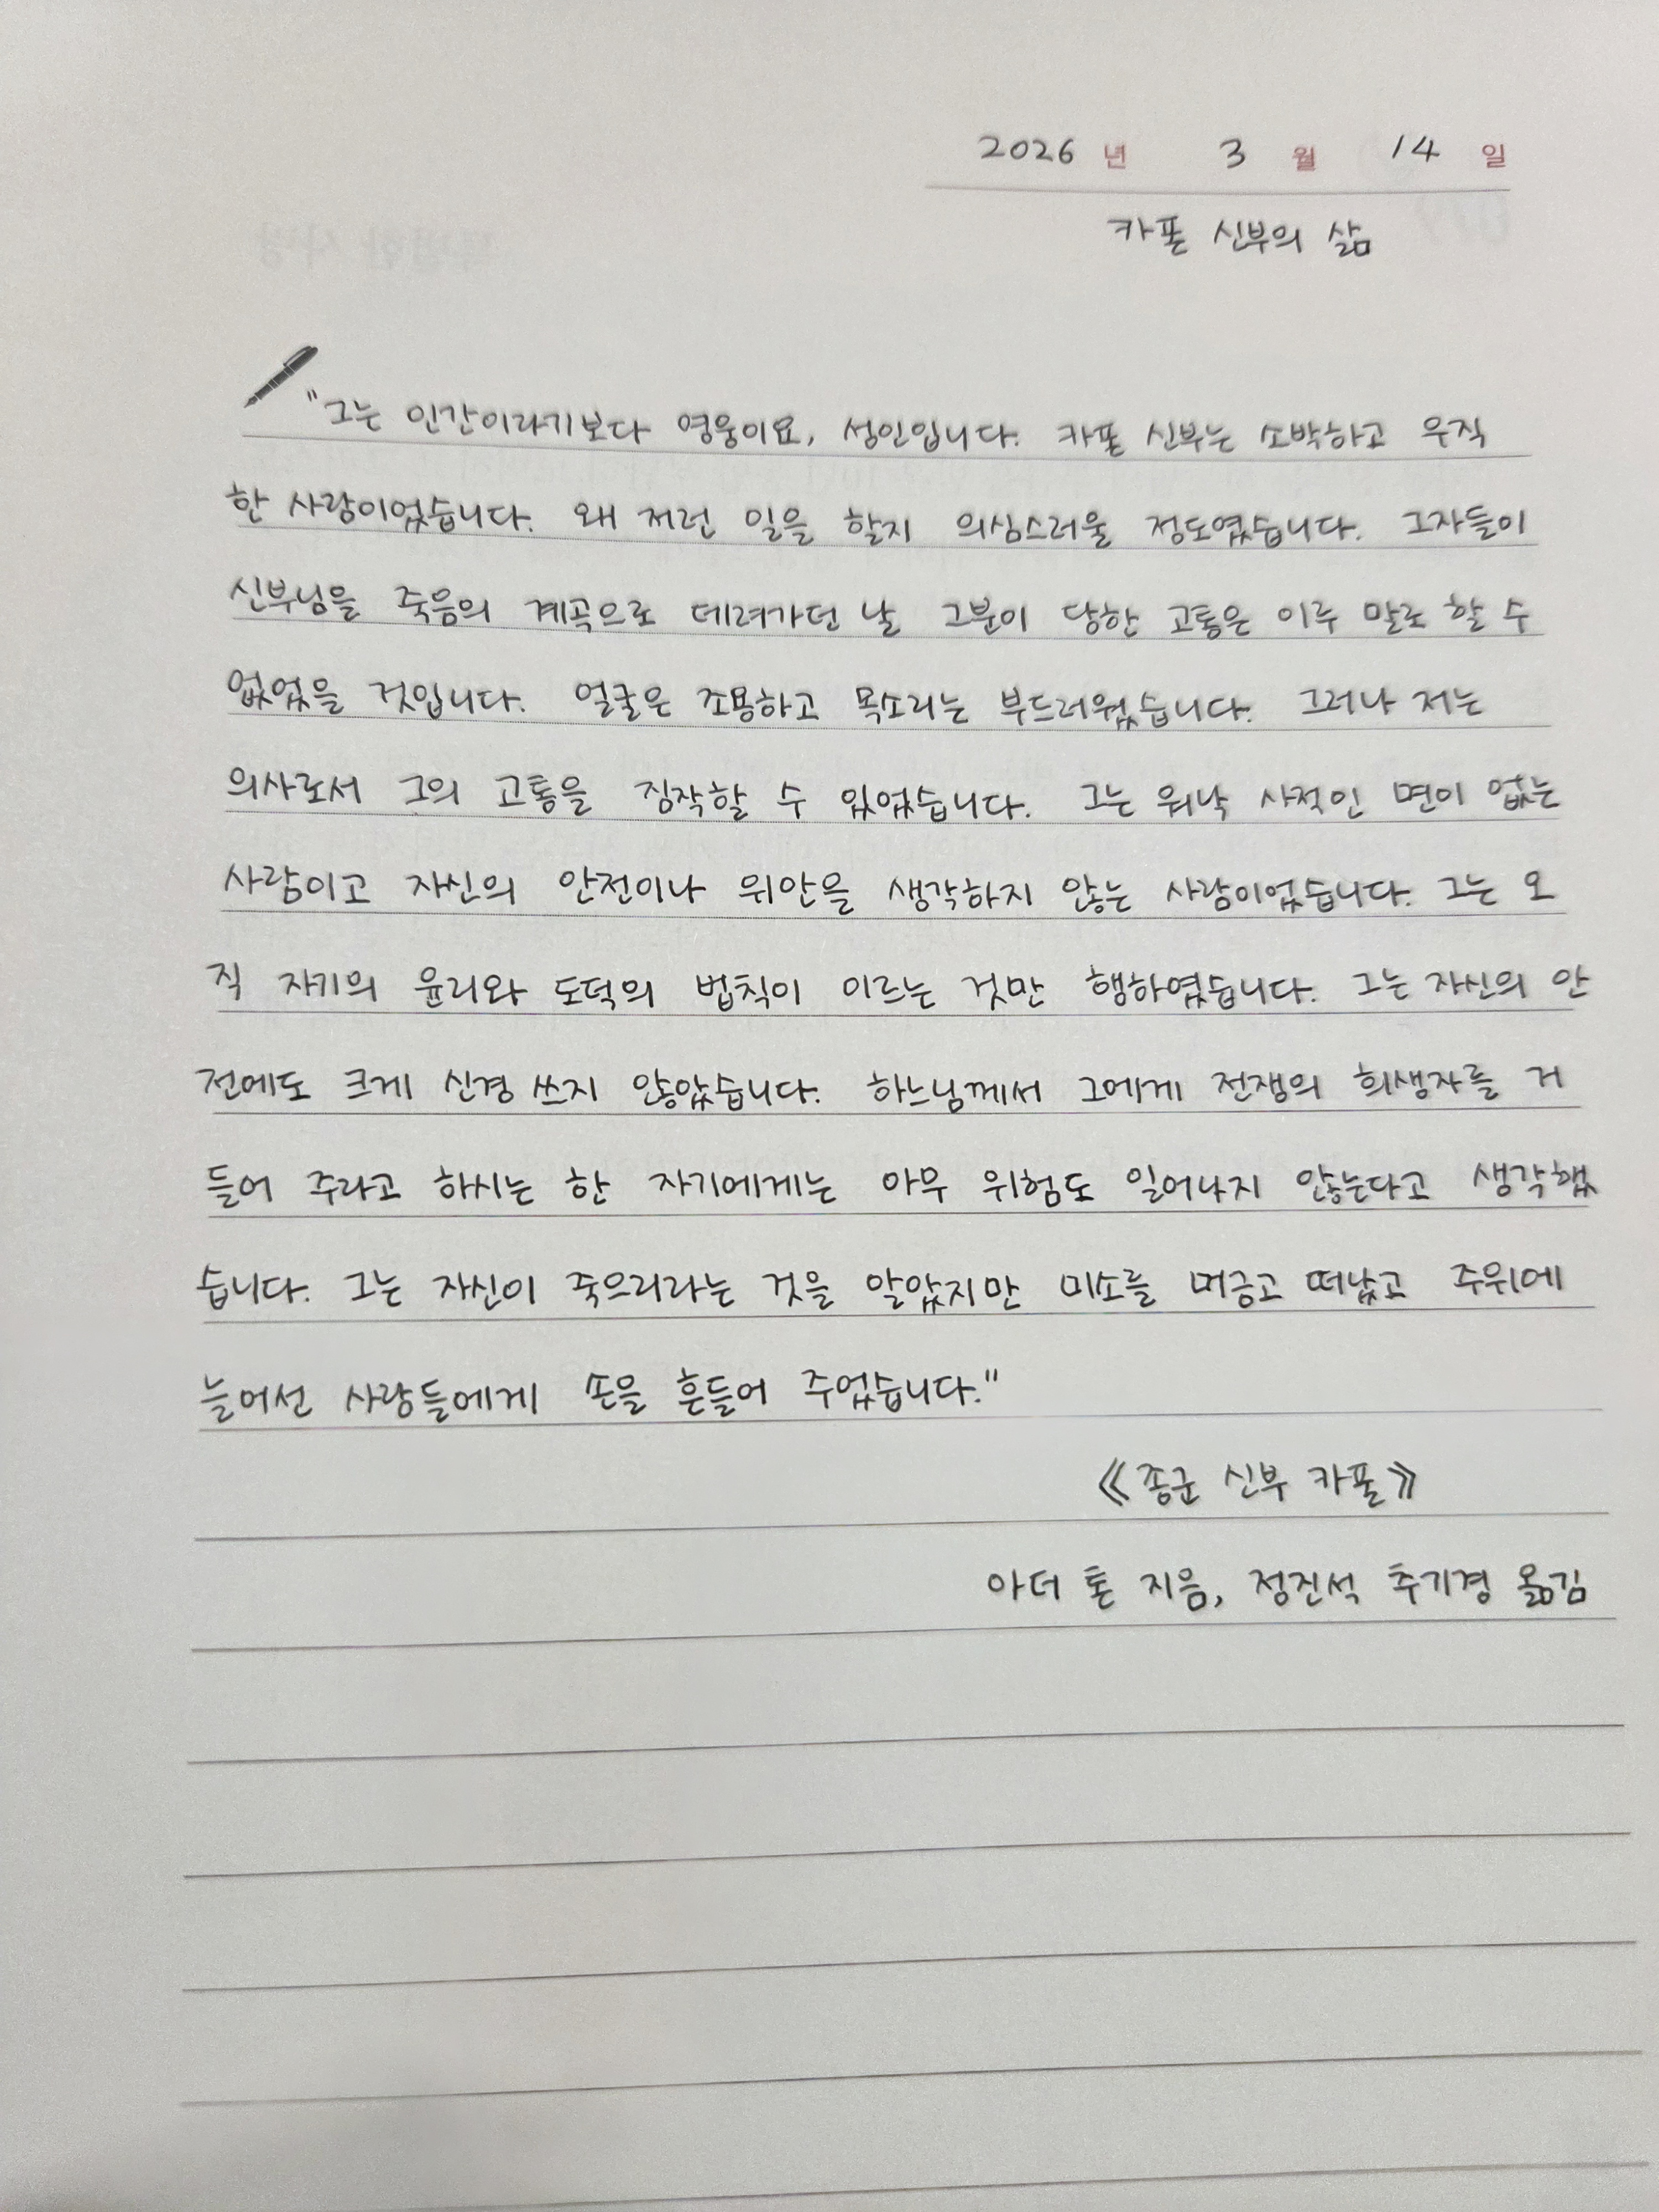 2026 년 3 월 14 일
카폰 신부의 삶
"그는 인간이라기보다 영웅이요, 성인입니다. 카폰 신부는 소박하고 우직
한 사람이었습니다. 왜 저런 일을 할지 의심스러울 정도였습니다. 그자들이
신부님을 죽음의 계곡으로 데려가던 날 그분이 당한 고통은 이루 말로 할 수
없었을 것입니다. 얼굴은 조용하고 목소리는 부드러웠습니다. 그러나 저는
의사로서 그의 고통을 짐작할 수 있었습니다. 그는 워낙 사적인 면이 없는
사람이고 자신의 안전이나 위안을 생각하지 않는 사람이었습니다. 그는 오
직 자기의 윤리와 도덕의 법칙이 이르는 것만 행하였습니다. 그는 자신의 안
전에도 크게 신경 쓰지 않았습니다. 하느님께서 그에게 전쟁의 희생자를 거
들어 주라고 하시는 한 자기에게는 아무 위험도 일어나지 않는다고 생각했
습니다. 그는 자신이 죽으리라는 것을 알았지만 미소를 머금고 떠났고 주위에
늘어선 사람들에게 손을 흔들어 주었습니다."
《종군 신부 카폰》
아더 톤 지음, 정진석 추기경 옮김